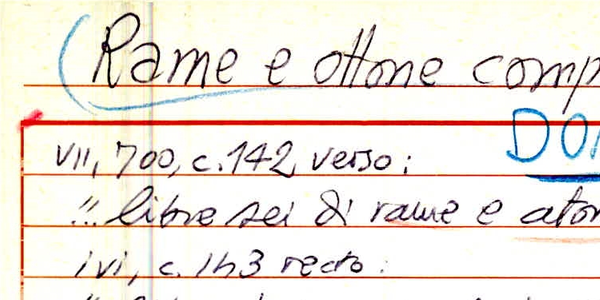 Rame e ottone comp
DON
VII, 700, c. 142 verso:
"... libre sei di rame e aton
ivi, c. 143 recto: